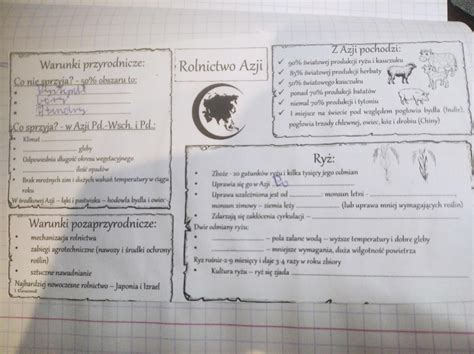 Warunki przyrodnicze:
Co nie sprzyja? - 50% obszaru to:
Góry
Co sprzyja? - w Azji Pd.-Wsch. i Pd.:
Klimat
gleby
Odpowiednia długość okresu wegetacyjnego
ilość opadów
Brak mroźnych zim i dużych wahań temperatury w ciągu
roku
W środkowej Azji – łąki i pastwiska – hodowla bydła i owiec
Warunki pozaprzyrodnicze:
mechanizacja rolnictwa
zabiegi agrotechniczne (nawozy i środki ochrony
roślin)
sztuczne nawadnianie
Najbardziej nowoczesne rolnictwo – Japonia i Izrael
Rolnictwo Azji
Z Azji pochodzi:
90% światowej produkcji ryżu i kauczuku
85% światowej produkcji herbaty
50% światowej produkcji
ponad 70% produkcji batatów
niemal 70% produkcji i tytoniu
I miejsce na świecie pod względem pogłowia bydła (Indie),
pogłowia trzody chlewnej, owiec, kóz i drobiu (Chiny)
Ryż:
Zboże - 20 gatunków ryżu i kilka tysięcy jego odmian
Uprawia się go w Azji
Uprawa uzależniona jest od monsun letni -
monsun zimowy – ziemia leży (lub uprawa mniej wymagających roślin)
Zdarzają się zakłócenia cyrkulacji –
Dwie odmiany ryżu:
– pola zalane wodą – wyższe temperatury i dobre gleby
– mniejsze wymagania, duża wilgotność powietrza
Ryż rośnie 2-9 miesięcy i daje 3-4 razy w roku zbiory
Kultura ryżu – ryż się zjada